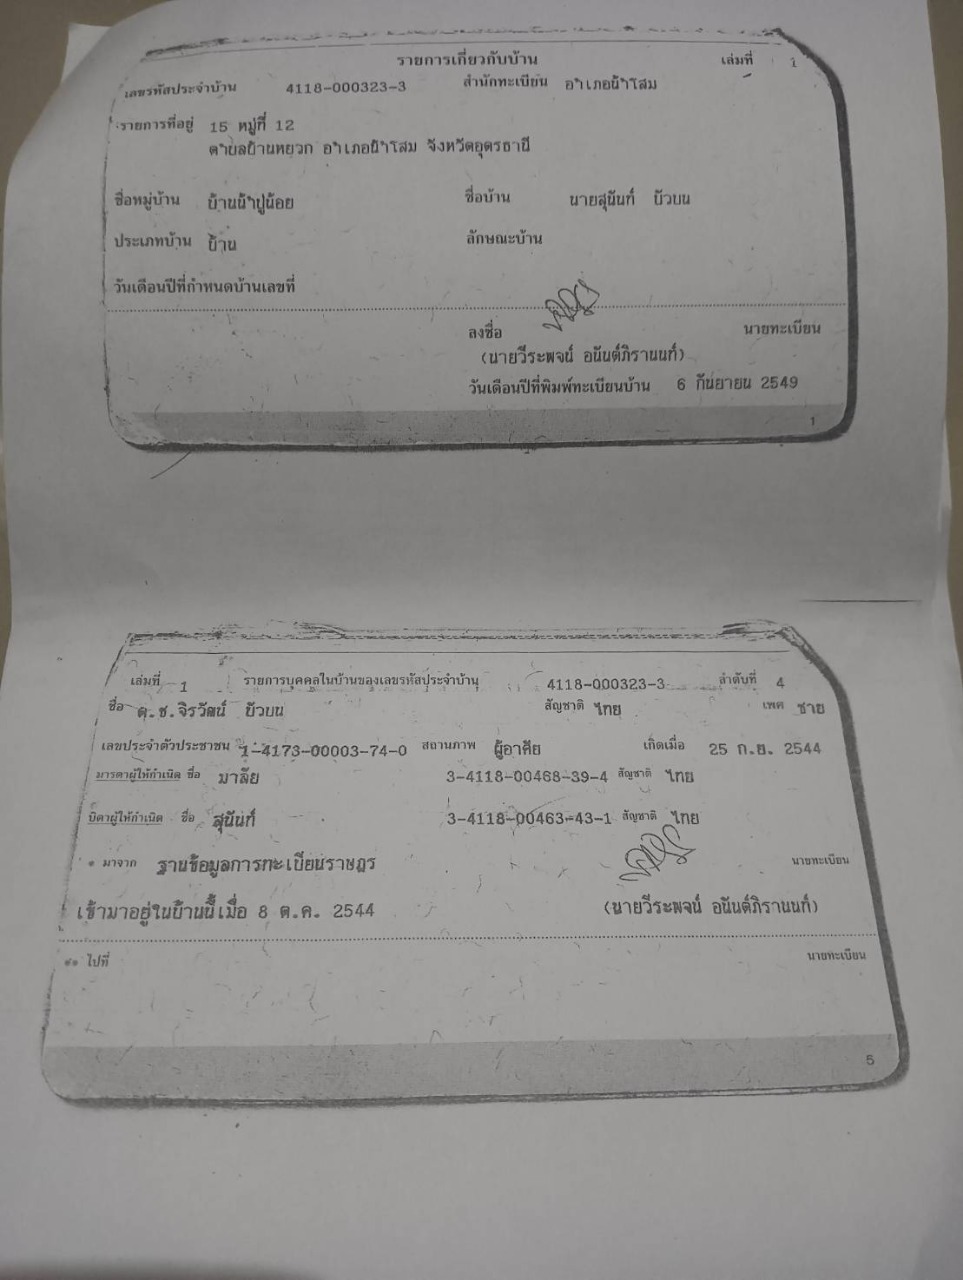 รายการเกี่ยวกับบ้าน เล่มที่ 1
เลขรหัสประจำบ้าน 4118-000323-3 สำนักทะเบียน อำเภอน้ำโสม
รายการที่อยู่ 15 หมู่ที่ 12
ตำบลบ้านหยวก อำเภอน้ำโสม จังหวัดอุดรธานี
ชื่อหมู่บ้าน บ้านน้ำปูน้อย ชื่อบ้าน นายสุนันท์ บัวบน
ประเภทบ้าน บ้าน ลักษณะบ้าน
วันเดือนปีที่กำหนดบ้านเลขที่
ลงชื่อ นายทะเบียน
(นายวีระพจน์ อนันต์ภิรานนท์)
วันเดือนปีที่พิมพ์ทะเบียนบ้าน 6 กันยายน 2549
1
เล่มที่ 1 รายการบุคคลในบ้านของเลขรหัสประจำบ้าน 4118-000323-3 ลำดับที่ 4
ชื่อ ด.ช.จิรวัฒน์ บัวบน สัญชาติ ไทย เพศ ชาย
เลขประจำตัวประชาชน 1-4173-00003-74-0 สถานภาพ ผู้อาศัย เกิดเมื่อ 25 ก.ย. 2544
มารดาผู้ให้กำเนิด ชื่อ มาลัย 3-4118-00468-39-4 สัญชาติ ไทย
บิดาผู้ให้กำเนิด ชื่อ สุนันท์ 3-4118-00463-43-1 สัญชาติ ไทย
* มาจาก ฐานข้อมูลการทะเบียนราษฎร นายทะเบียน
เข้ามาอยู่ในบ้านนี้เมื่อ 8 ต.ค. 2544 (นายวีระพจน์ อนันต์ภิรานนท์)
** ไปที่ นายทะเบียน
5